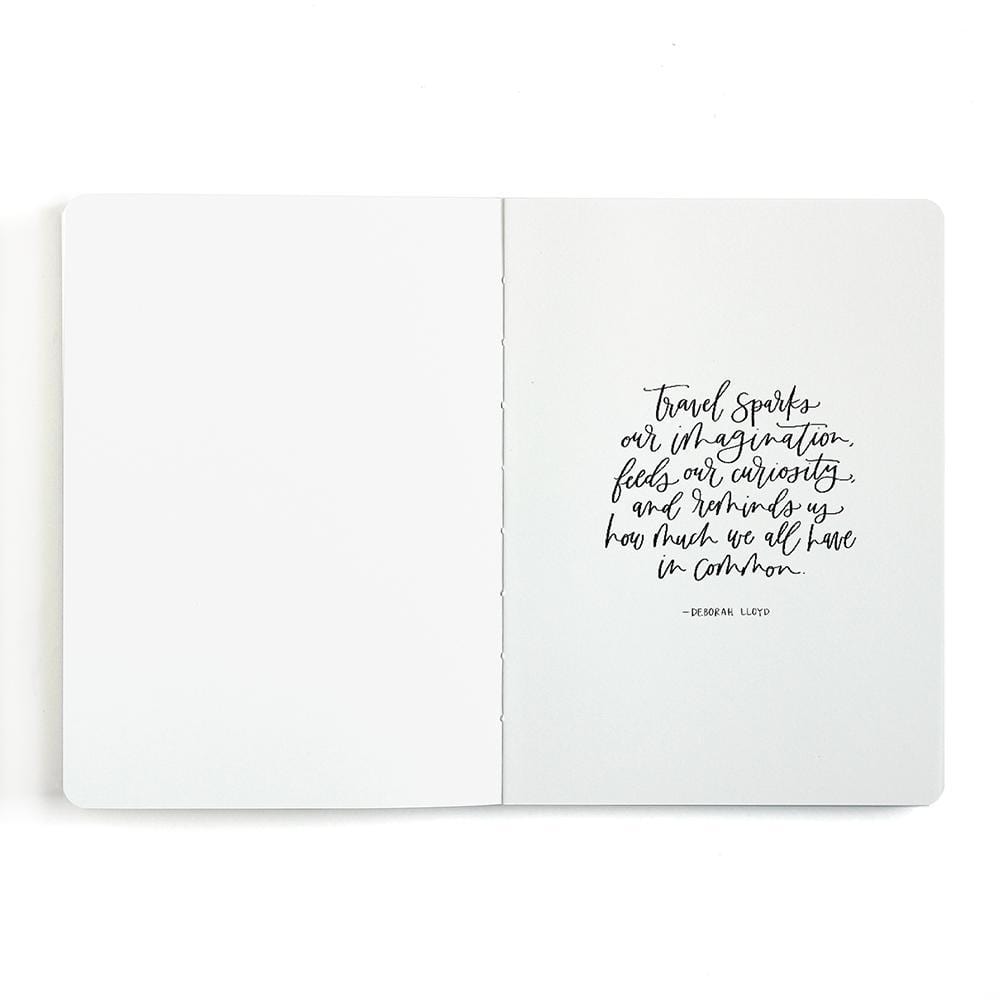 travel sparks
our imagination,
feeds our curiosity,
and reminds us
how much we all have
in common.
—DEBORAH LLOYD